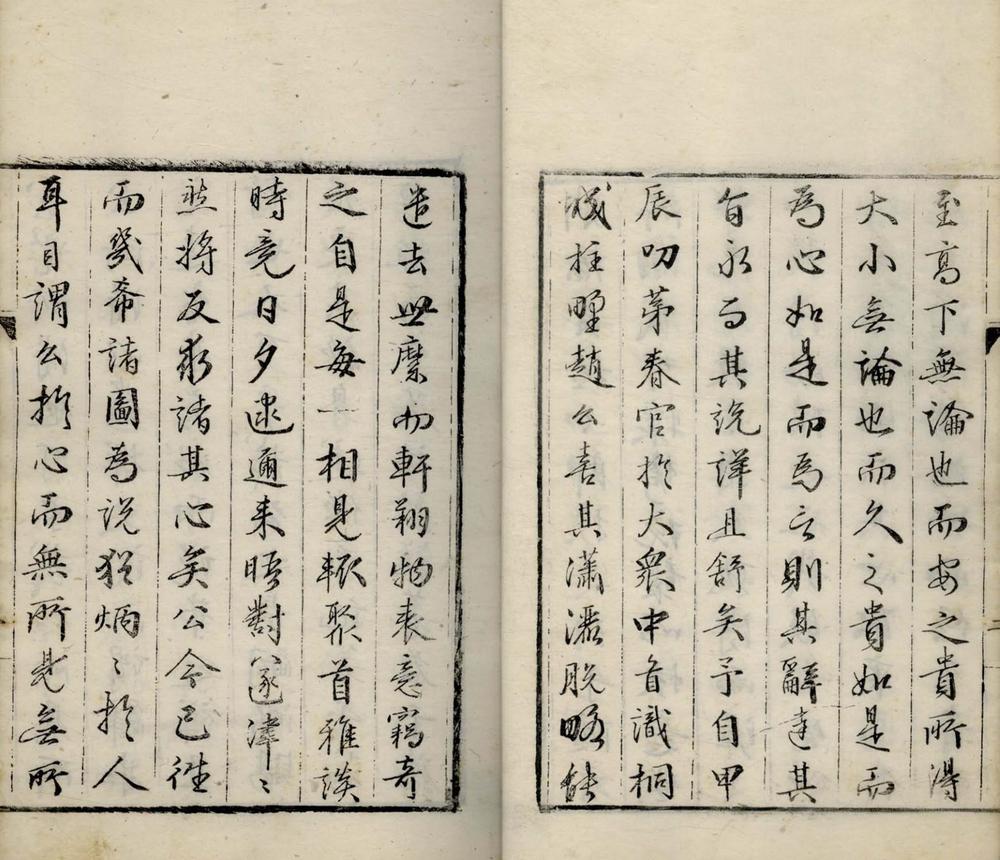 至高下無論也而安之貴所得
大小無論也而久之貴如是而
為心如是而為言則其辭達其
旨永而其說詳且舒矣予自甲
辰叨第春官於大衆中首識桐
城拄野趙公喜其瀟灑脫略能
遣去世糜而軒翔物表意竊奇
之自是每一相見輒聚首雅談
時竟日夕逮邇来晤對益津〻
然將反求諸其心矣公今已往
而幾希諸圖為說猶炳〻於人
耳目謂公於心而無所見無所